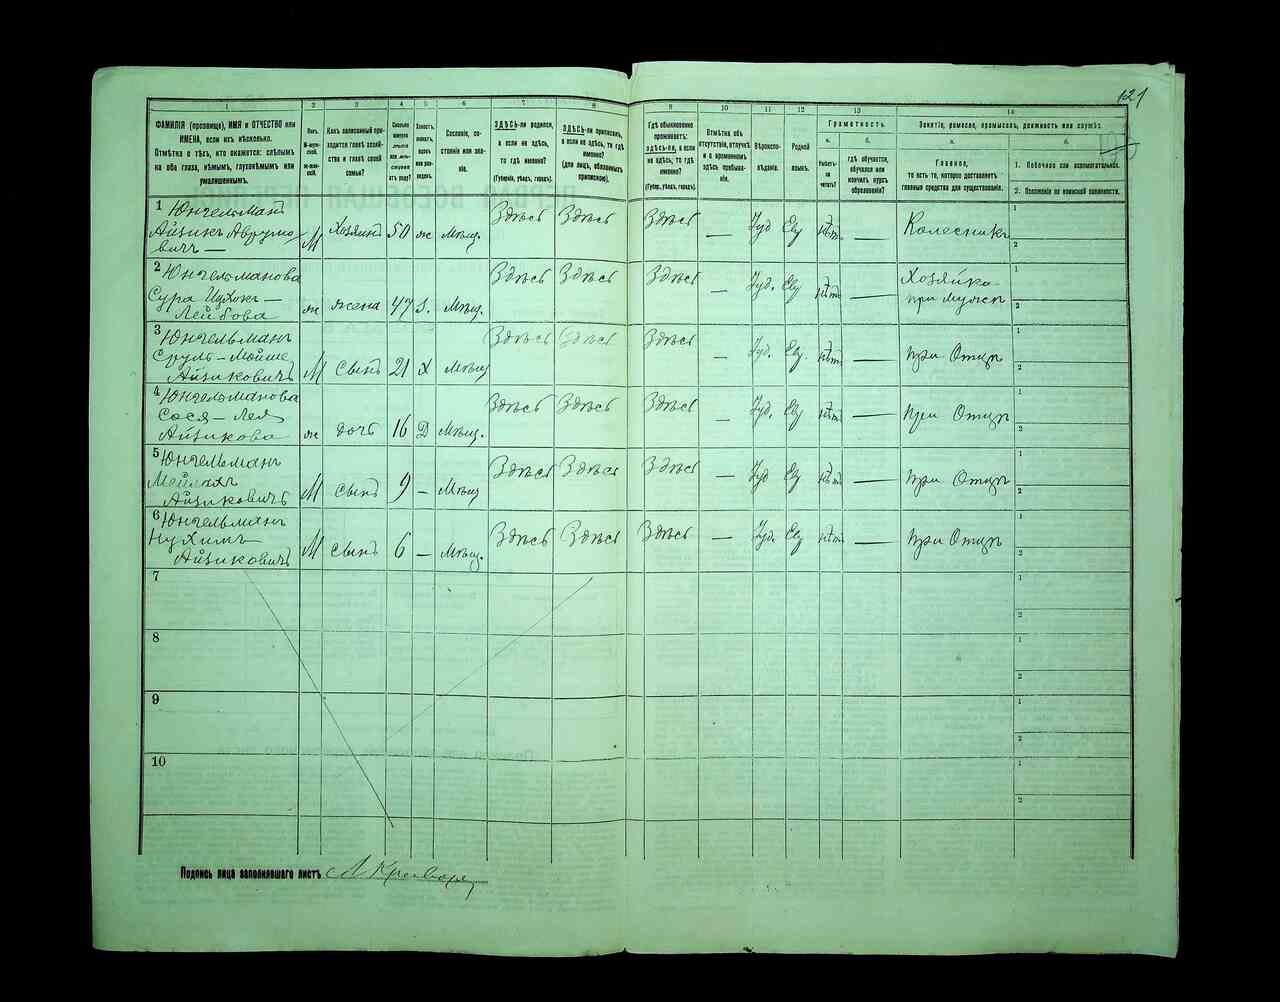 121
1
2
3
4
5
6
7
8
9
10
11
12
13
14
ФАМИЛІЯ (прозвище), ИМЯ и ОТЧЕСТВО или
ИМЕНА, если ихъ нѣсколько.
Отмѣтка о тѣхъ, кто окажется: слѣпымъ
на оба глаза, нѣмымъ, глухонѣмымъ или
умалишеннымъ.
Полъ.
М-муж-
ской.
Ж-жен-
скій.
Какъ записанный при-
ходится главѣ хозяй-
ства и главѣ своей
семьи?
Сколько
минуло
лѣтъ
или мѣ-
сяцевъ
отъ роду?
Холостъ,
женатъ,
вдовъ
или раз-
веденъ.
Сословіе, со-
стояніе или зва-
ніе.
ЗДѢСЬ-ли родился,
а если не здѣсь,
то гдѣ именно?
(Губернія, уѣздъ, городъ).
ЗДѢСЬ-ли приписанъ,
а если не здѣсь, то гдѣ
именно?
(для лицъ, обязанныхъ
припискою).
Гдѣ обыкновенно
проживаетъ:
здѣсь-ли, а если
не здѣсь, то гдѣ
именно?
(Губерн., уѣздъ, городъ).
Отмѣтка объ
отсутствіи, отлучкѣ
и о временномъ
здѣсь пребыва-
ніи.
Вѣроиспо-
вѣданіе.
Родной
языкъ.
Грамотность.
а.
Умѣетъ-
ли
читать?
б.
гдѣ обучается,
обучался или
кончилъ курсъ
образованія?
Занятіе, ремесло, промыселъ, должность или служба.
а.
Главное,
то есть то, которое доставляетъ
главныя средства для существованія.
б.
1. Побочное или вспомогательное.
2. Положеніе по воинской повинности.
1 Юнгельманъ
Айзикъ Аврумо
вичъ —
М Хозяинъ 50 ж Мѣщ. Здѣсь Здѣсь Здѣсь — Іуд Евр нѣт — Колесникъ
1
2
2 Юнгельманова
Сура Ицхок —
Лейбова
ж жена 47 З. Мѣщ. Здѣсь Здѣсь Здѣсь — Іуд. Евр нѣт — Хозяйка
при мужѣ
1
2
3 Юнгельманъ
Сруль — Мойше
Айзиковичъ
М сынъ 21 Х Мѣщ Здѣсь Здѣсь Здѣсь — Іуд. Евр. нѣт — при Отцѣ
1
2
4 Юнгельманова
Сося — Лея
Айзикова
ж дочь 16 Д Мѣщ. Здѣсь Здѣсь Здѣсь — Іуд. Евр нѣт — при Отцѣ
1
2
5 Юнгельманъ
Мейлахъ
Айзиковичъ
М сынъ 9 — Мѣщ Здѣсь Здѣсь Здѣсь — Іуд Евр нѣт — при Отцѣ
1
2
6 Юнгельманъ
Нухимъ
Айзиковичъ
М сынъ 6 — Мѣщ. Здѣсь Здѣсь Здѣсь — Іуд. Евр нѣт — при Отцѣ
1
2
7
1
2
8
1
2
9
1
2
10
1
2
Подпись лица заполнявшаго листъ